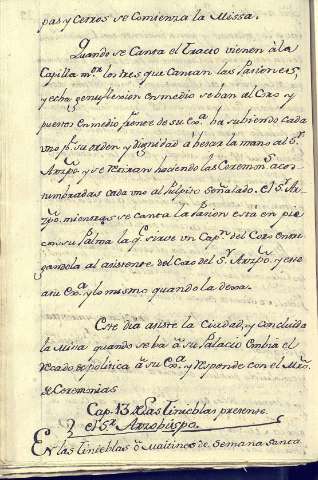 pas y Cerros se Comienza la Missa.
Quando se Canta el Tracto vienen à la
Capilla m.or los tres que Cantan las Pasiones,
y echa genuflexion en medio se ban al Coro y
puestos en medio de su Ex.a ha subiendo cada
vno p.r su orden y dignidad á besar la mano al S.r
Arzpo. y se retiran haciendo las Ceremm.s acos-
tumbradas cada vno al Pulpito señalado. el S.r Ar-
zpo. mientras se canta la Pasion está en pie
con su Palma la q.e sirve vn Cap.n del Coro entre-
gandola al asistente del Coro del S.r Arzpo. y este
a su Ex.a y lo mismo quando la dexa.
Este dia asiste la Ciudad, y concluida
la Missa quando se ba a su Palacio embia el
recado de politica à su Ex.a y responde con el M.ro
de Ceremonias
Cap. 13 de las Tinieblas presente
el S.r Arzobispo.
En las Tinieblas ò Maitines de Semana Santa